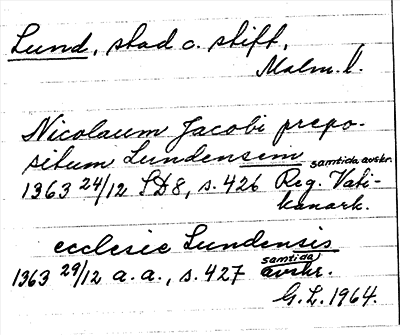 Lund, stad o. stift,
Malm. l.
Nicolaum Jacobi prepo-
situm Lundensem samtida avskr.
1363 24/12 SD8, s. 426 Reg. Vati-
kanark.
ecclesie Lundensis
1363 29/12 a. a., s. 427 samtida avskr.
G. L. 1964.